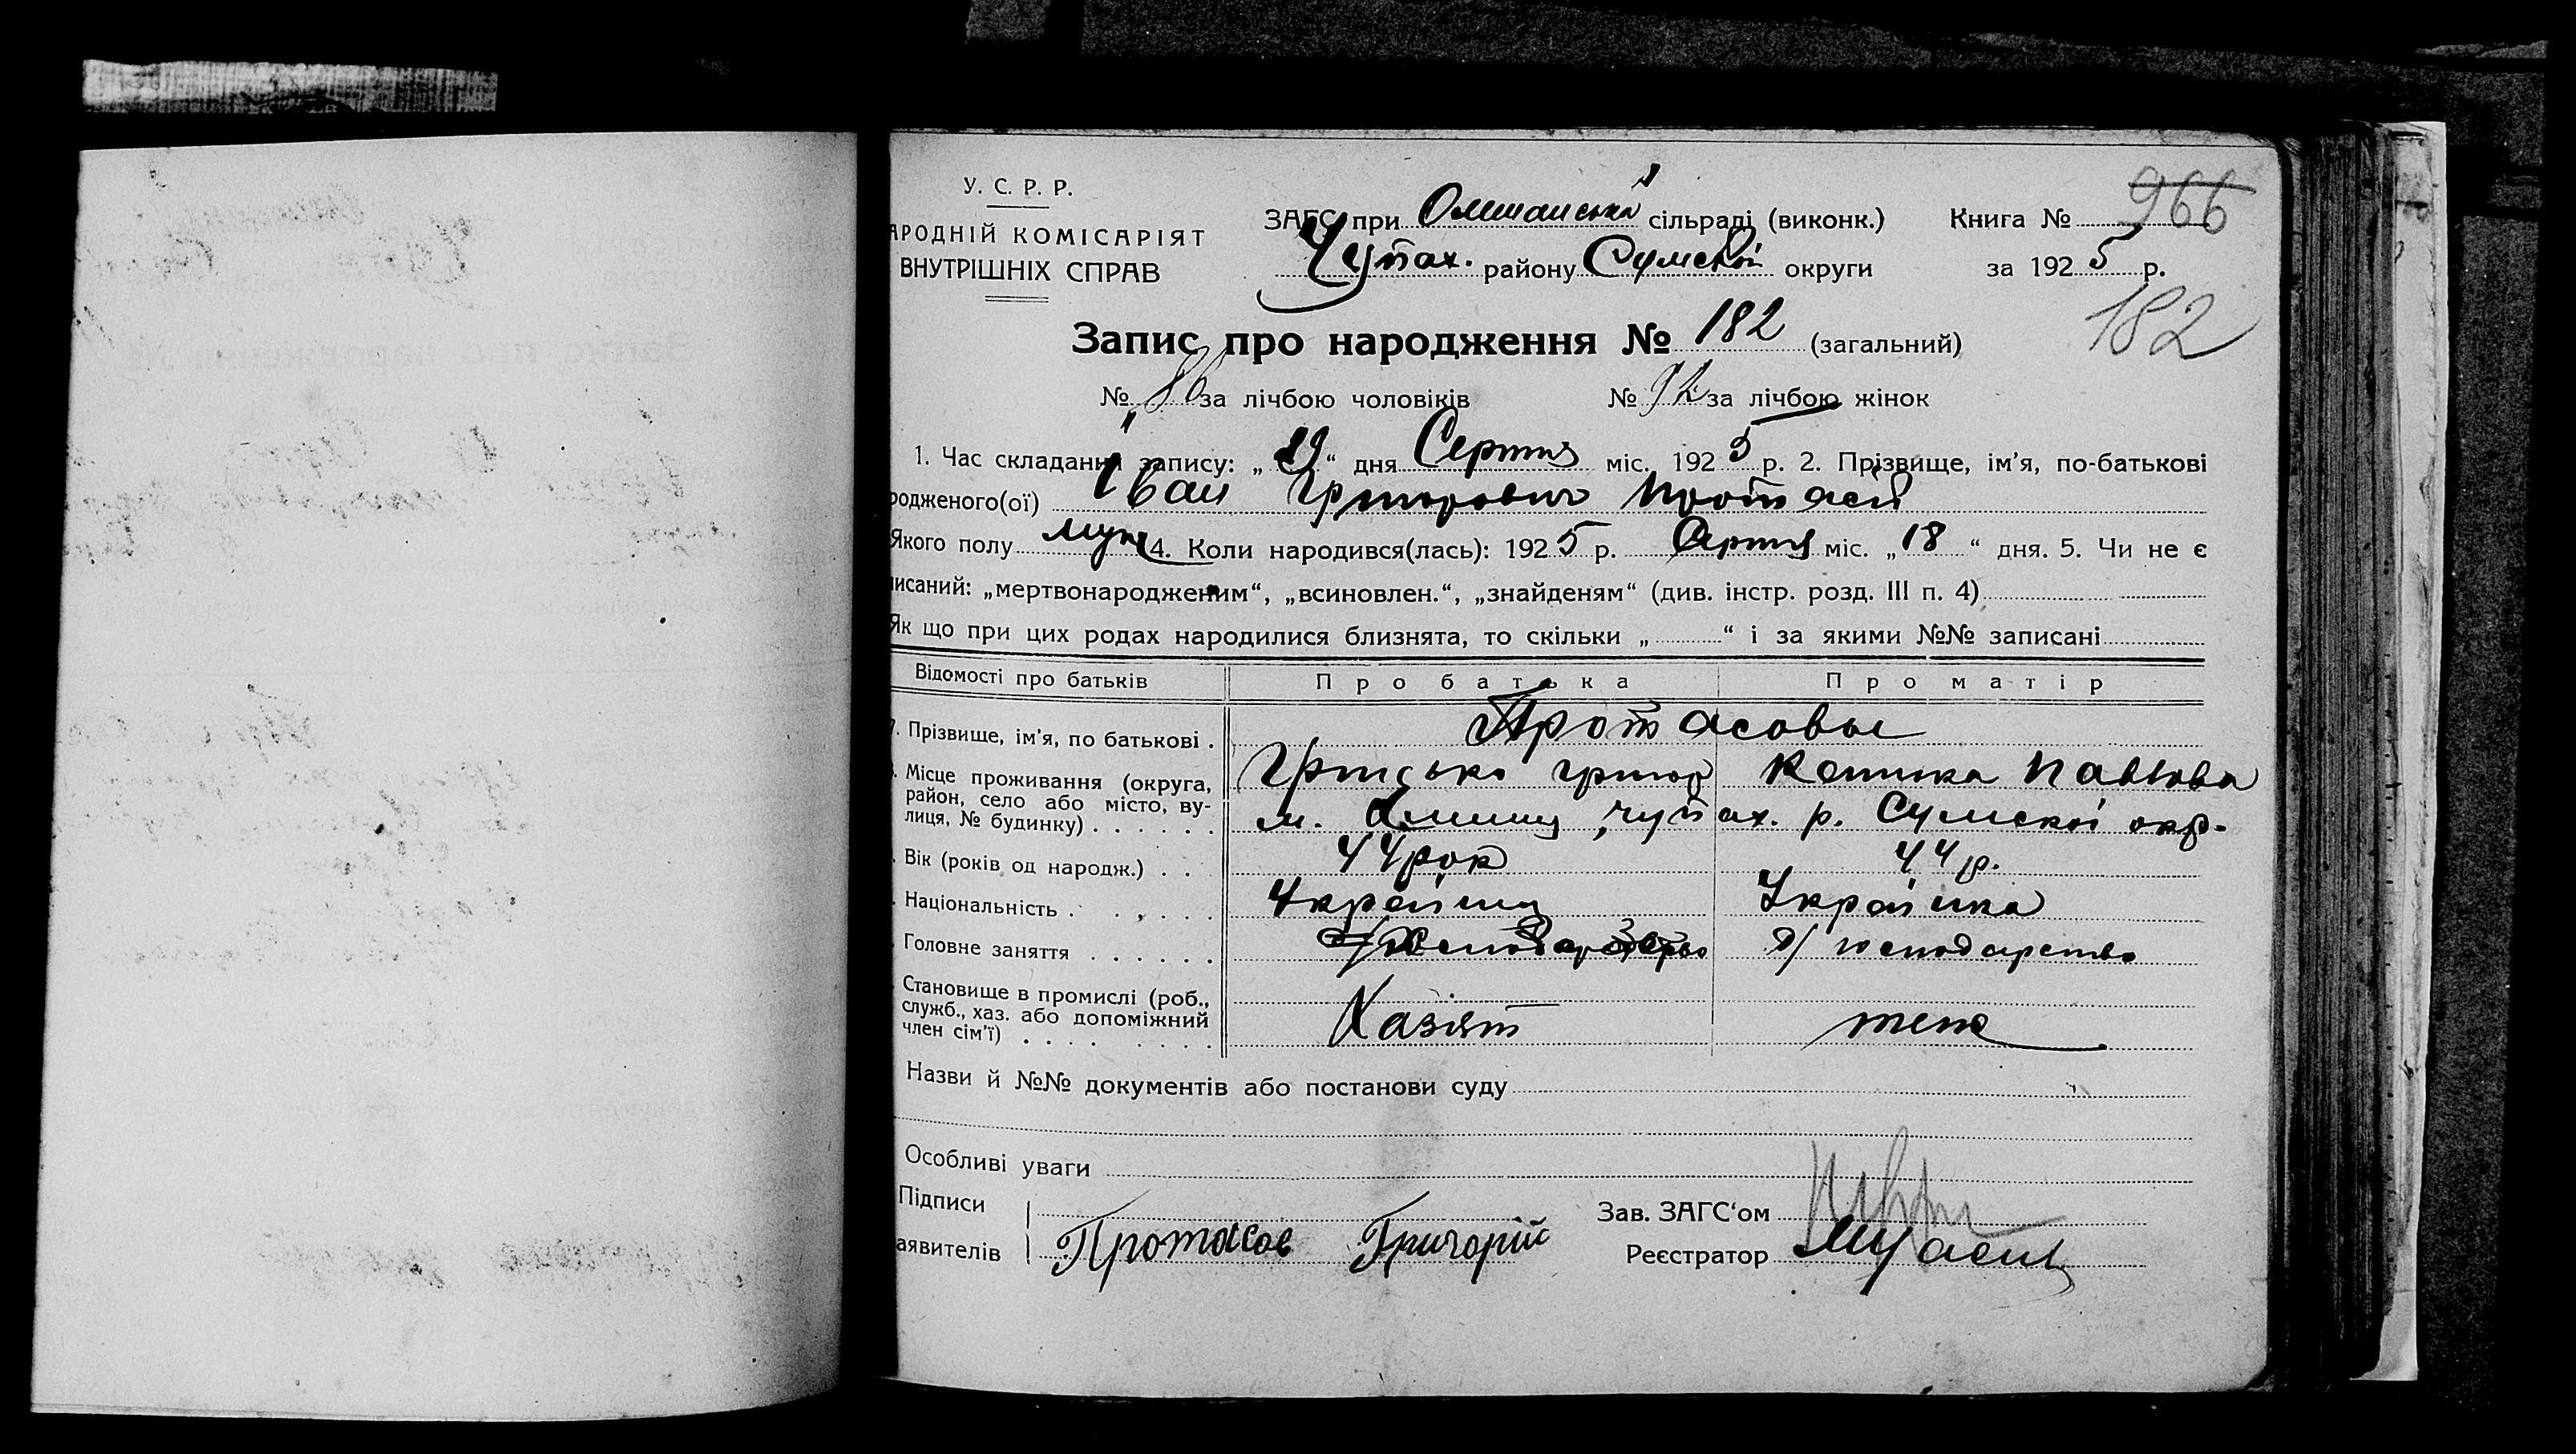 У. С. Р. Р.
АРОДНІЙ КОМІСАРІЯТ
ВНУТРІШНІХ СПРАВ
ЗАГС при сільраді (виконк.) Книга № 966
Чупах. району Сумскої округи за 1925 р.
Запис про народження № 182 (загальний) 182
№ за лічбою чоловіків № за лічбою жінок
1. Час складання запису: „ “ дня Серпня міс. 1925 р. 2. Прізвище, ім’я, по-батькові
родженого(ої) Іван Григорович
Якого полу муж 4. Коли народився(лась): 1925 р. Серпня міс. „18“ дня. 5. Чи не є
писаний: „мертвонародженим“, „всиновлен.“, „знайденям“ (див. інстр. розд. III п. 4)
Як що при цих родах народилися близнята, то скільки „ “ і за якими №№ записані
Відомості про батьків Про батька Про матір
7. Прізвище, ім’я, по батькові . Протасовы
Місце проживання (округа, район, село або місто, вулиця, № будинку) . . . . . . м. чупах. р. Сумскої окр.
Вік (років од народж.) . . 44 рок 44 р.
Національність . . , . . . Українец Українка
Головне заняття . . . . . . господарство
Становище в промислі (роб., служб., хаз. або допоміжний член сім’ї) . . . . . . . . Хазяїн
Назви й №№ документів або постанови суду
Особливі уваги
Підписи Зав. ЗАГС‘ом
аявителів Протасов Григорій Реєстратор